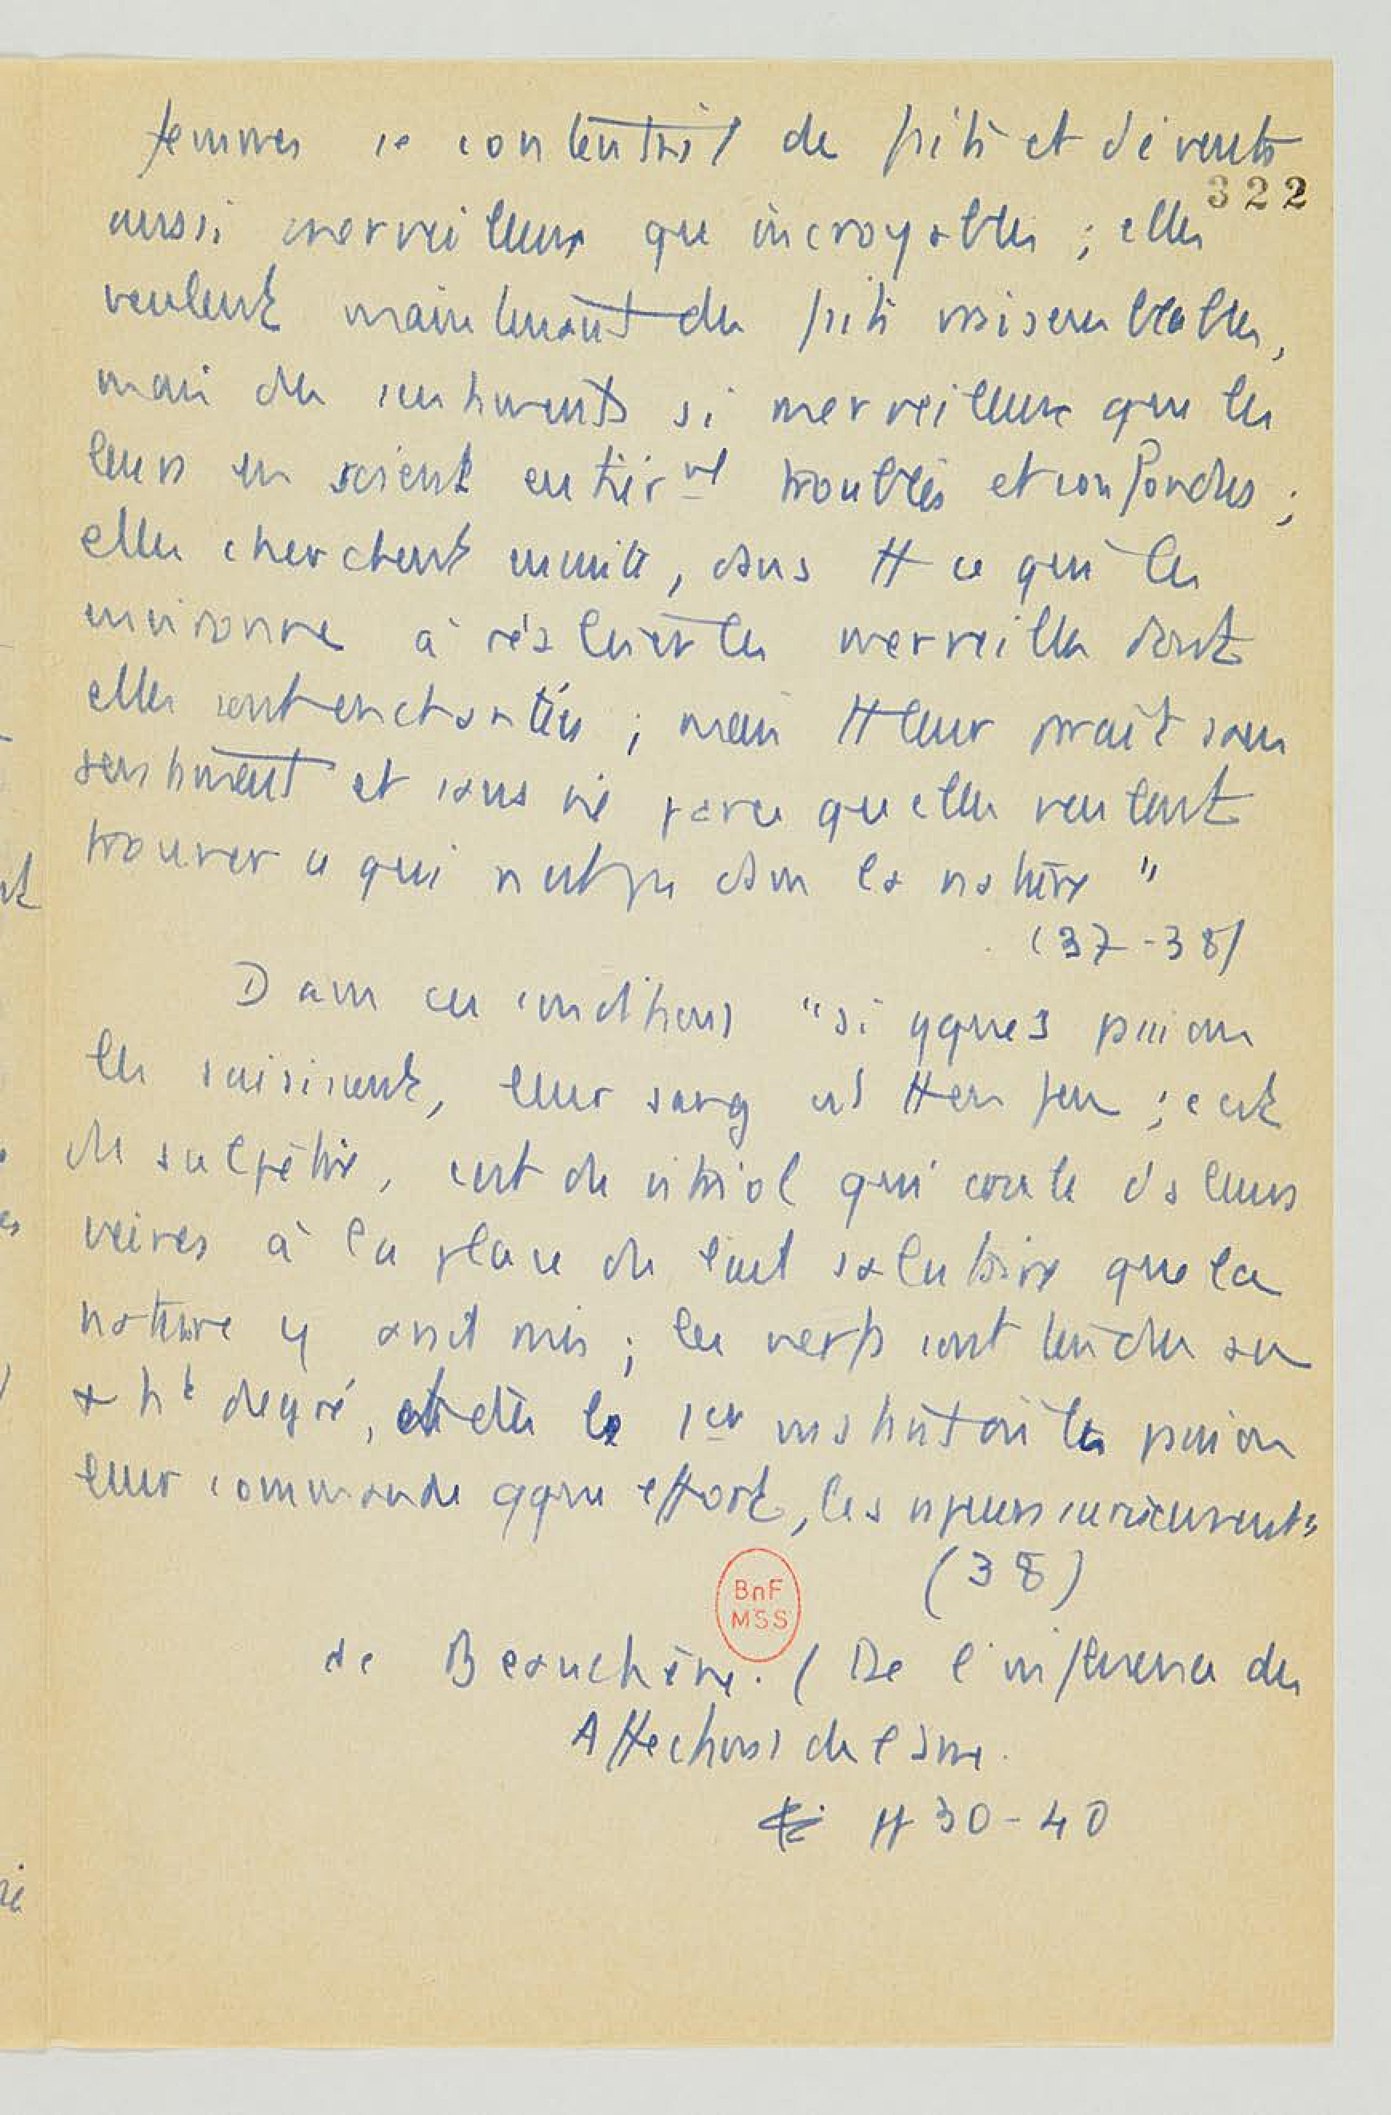 femmes se contentai[en]t de faits et d'évents
322
aussi merveilleux que incroyables ; elles
veulent maintenant des faits vraisemblables,
mais des sentiments si merveilleux que les
leurs en soient entièrmt troublés et confondus ;
elles cherchent ensuite, dans tt ce qui les
environne à réaliser les merveilles dont
elles sont enchantées ; mais tt leur paraît sans
sentiment et sans vie parce qu'elles veulent
trouver ce qui n'est pas dans la nature "
(37-38)
Dans ces conditions "si qques passions
les saisissent, leur sang est tt en feu ; c'est
du salpêtre, c'est du vitriol qui coule ds leurs
veines à la place du lait salutaire que la
nature y avait mis ; les nerfs sont tendus au
+ ht degré, et dès le 1er instant où la passion
leur commande qque effort,
(38)
BnF
MSS
de Beauchêne. (De l'influence des
Affections de l'âme.
pp 30-40